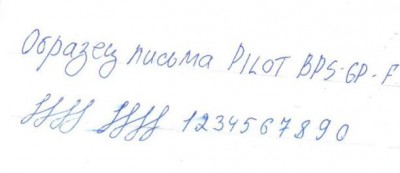 Образец письма PILOT BPS-GP-F
1234567890